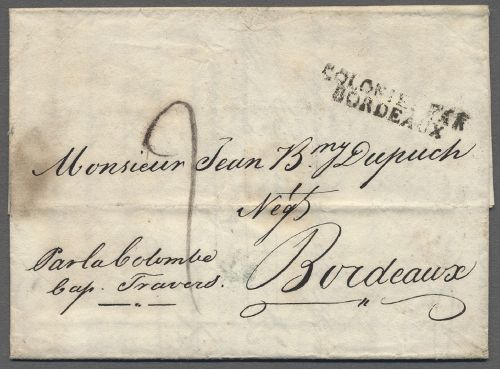 COLONIES PAR
BORDEAUX
Monsieur Jean B.my Dupuch
Négt
Bordeaux
Par la Colombe
Cap. Travers.